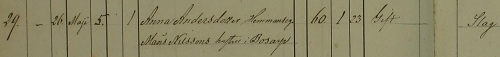 29. – 26 Maji 5. 1 Anna Andersdotter, Hemmanseg. 60 1 23 Gift Slag
Måns Nilssons hustru i Bosarp